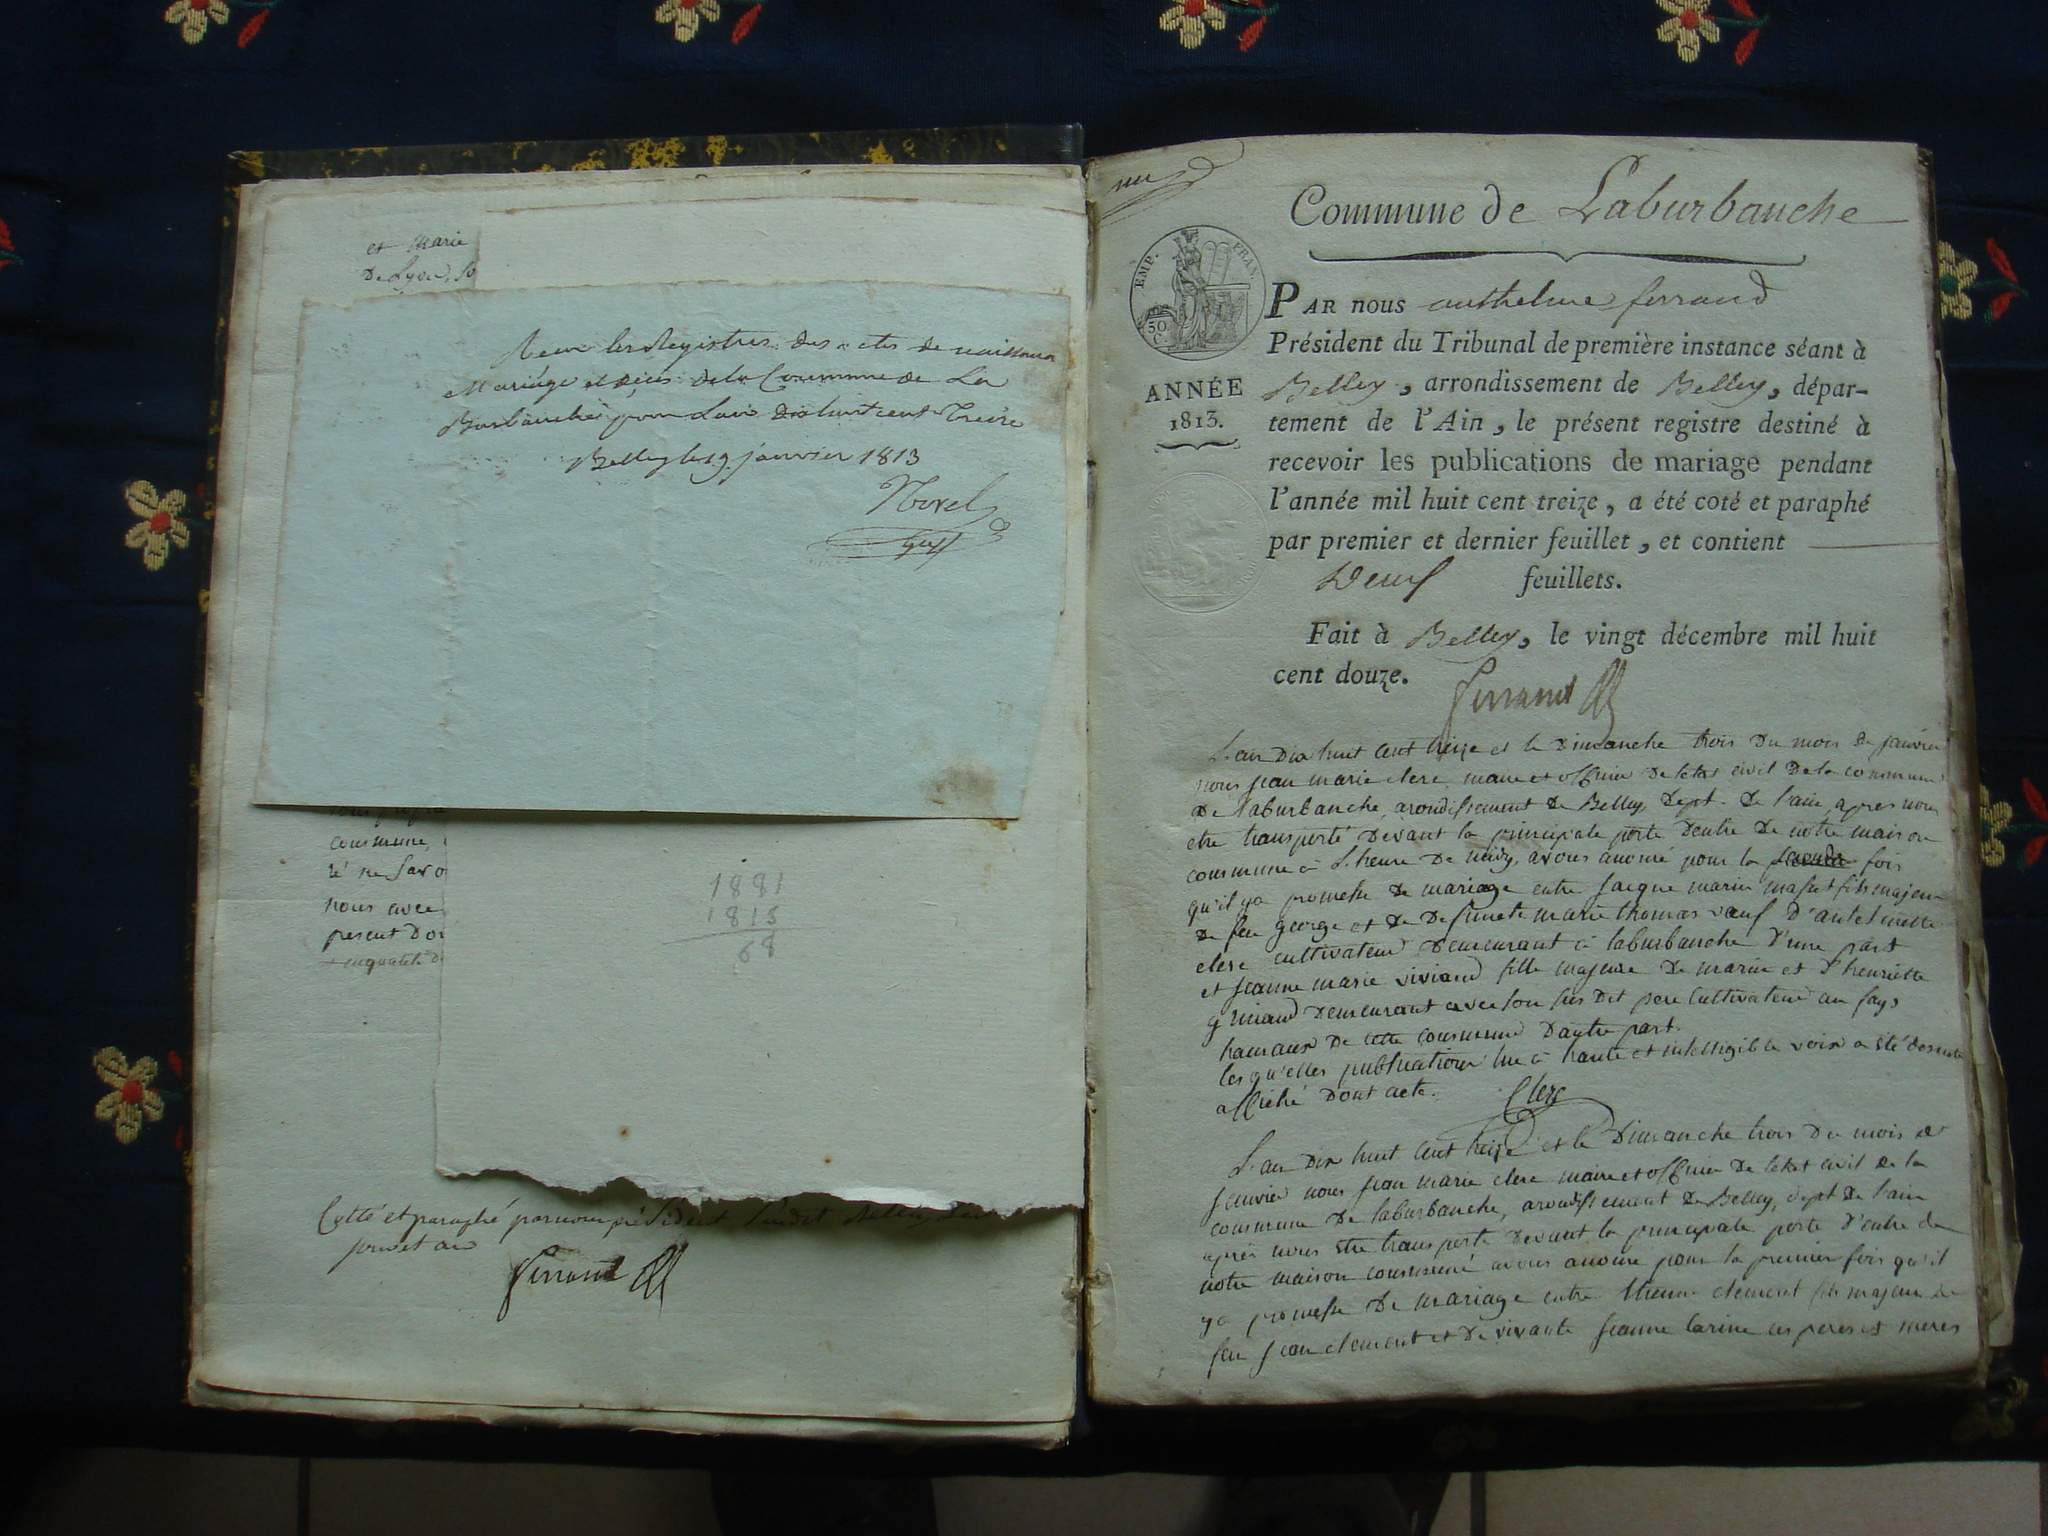 et marie
De Lyon, so
Reçu les Registres des actes de naissance
Mariage et décès de la Commune de La
Burbanche pour l'an Dix huit cent Treize
Belley le 19 janvier 1813
Morel
Greff
commune,
ré ne savo
nous avec
present D'or
1881
1815
68
Cotté et paraphé par nous président susdit Belley Les
jour et an
Ferrand
Commune de Laburbanche
EMP. FRAN.
50 C.
ANNÉE
1813.
PAR nous anthelme ferrand
Président du Tribunal de première instance séant à
Belley, arrondissement de Belley, dépar-
tement de l'Ain, le présent registre destiné à
recevoir les publications de mariage pendant
l'année mil huit cent treize, a été coté et paraphé
par premier et dernier feuillet, et contient
Deux feuillets.
Fait à Belley, le vingt décembre mil huit
cent douze.
Ferrand
L'an Dix huit cent treize et le Dimanche trois Du mois De janvier
nous jean marie clerc maire et officier De letat civil De la commune
De laburbanche, arondissement De Belley Dept. De l'ain, apres nous
etre transporté Devant la principale porte Dentré De notre maison
commune à l'heure De midy, avons anoncé pour la seconde fois
qu'il ya promesse De mariage entre jacque marin fils majeur
De feu george et De Defuncte marie thomas veuf D'antelmette
clerc cultivateur Demeurant à laburbanche D'une part
et jeanne marie viviand fille majeure De marin et D'henriette
Demeurant avec son sus Dit pere cultivateur au
hamaux De cette commune D'autre part.
les qu'elles publications lue à haute et intelligible voix a été De suite
affiché Dont acte. Clerc
L'an Dix huit cent treize et le Dimanche trois Du mois De
janvier nous jean marie clerc maire et officier De letat civil De la
commune De laburbanche, arondissement De Belley, Dept De l'ain
après nous etre transporté Devant la principale porte D'entré De
notre maison commune avons anoncé pour la premier fois qu'il
ya promesse De mariage entre Etienne clement fils majeur De
feu jean clement et De vivante jeanne carine ces peres et meres